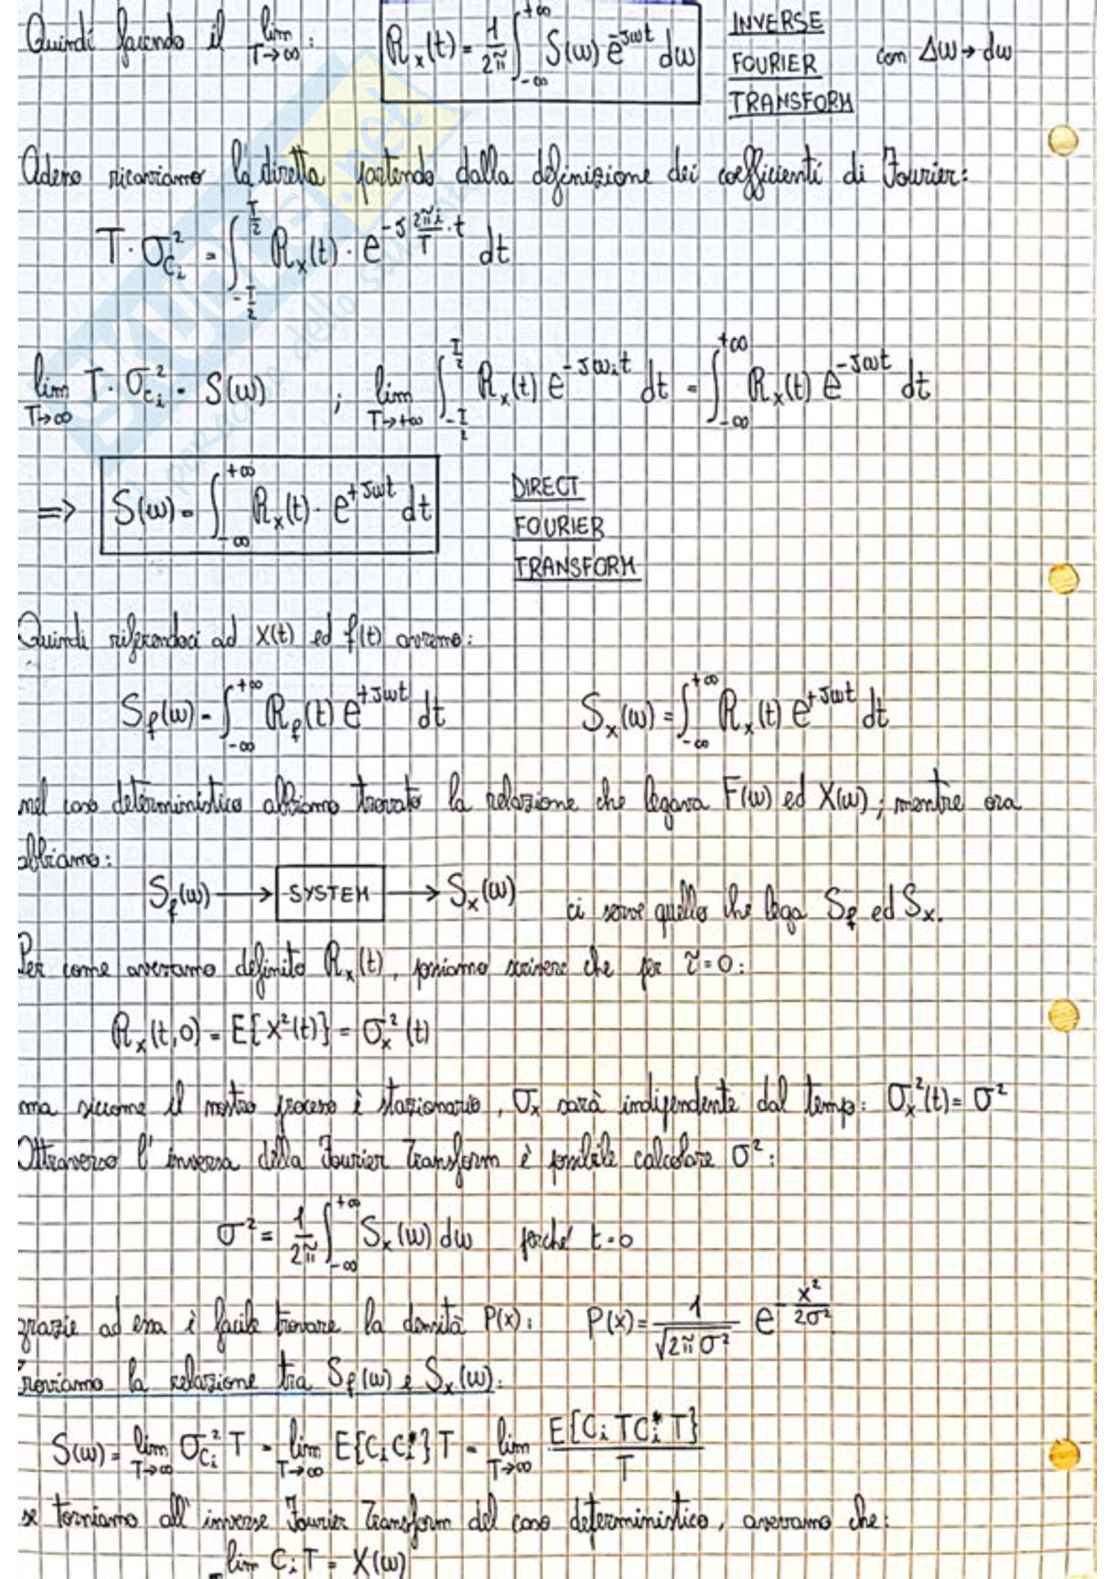 Quindi facendo il lim T→∞ : R_x(t) = 1/2π ∫_{-∞}^{+∞} S(ω) e^{-jωt} dω INVERSE FOURIER TRANSFORM con Δω → dω
Adesso ricaviamo la diretta partendo dalla definizione dei coefficienti di Fourier:
T · σ²_{c_i} = ∫_{-T/2}^{T/2} R_x(t) · e^{-j 2πi/T · t} dt
lim T→∞ T · σ²_{c_i} = S(ω) ; lim T→+∞ ∫_{-T/2}^{T/2} R_x(t) e^{-jω_i t} dt = ∫_{-∞}^{+∞} R_x(t) e^{-jωt} dt
⇒ S(ω) = ∫_{-∞}^{+∞} R_x(t) · e^{+jωt} dt DIRECT FOURIER TRANSFORM
Quindi riferendoci ad X(t) ed f(t) avremo:
S_f(ω) = ∫_{-∞}^{+∞} R_f(t) e^{+jωt} dt S_x(ω) = ∫_{-∞}^{+∞} R_x(t) e^{+jωt} dt
nel caso deterministico abbiamo trovato la relazione che legava F(ω) ed X(ω); mentre ora
abbiamo:
S_f(ω) → SYSTEM → S_x(ω) ci serve quello che lega S_f ed S_x.
Per come avevamo definito R_x(t), possiamo scrivere che per τ = 0:
R_x(t,0) = E{X²(t)} = σ_x²(t)
ma siccome il nostro processo è stazionario, σ_x sarà indipendente dal tempo: σ_x²(t) = σ²
Attraverso l'inversa della Fourier Transform è possibile calcolare σ²:
σ² = 1/2π ∫_{-∞}^{+∞} S_x(ω) dω perché t = 0
grazie ad essa è facile trovare la densità P(x): P(x) = 1/√(2πσ²) e^{-x²/2σ²}
Troviamo la relazione tra S_f(ω) e S_x(ω):
S(ω) = lim T→∞ σ²_{c_i} T = lim T→∞ E{C_i C_i*} T = lim T→∞ E{C_i T C_i* T} / T
se torniamo all'inverse Fourier Transform del caso deterministico, avevamo che:
lim C_i T = X(ω)